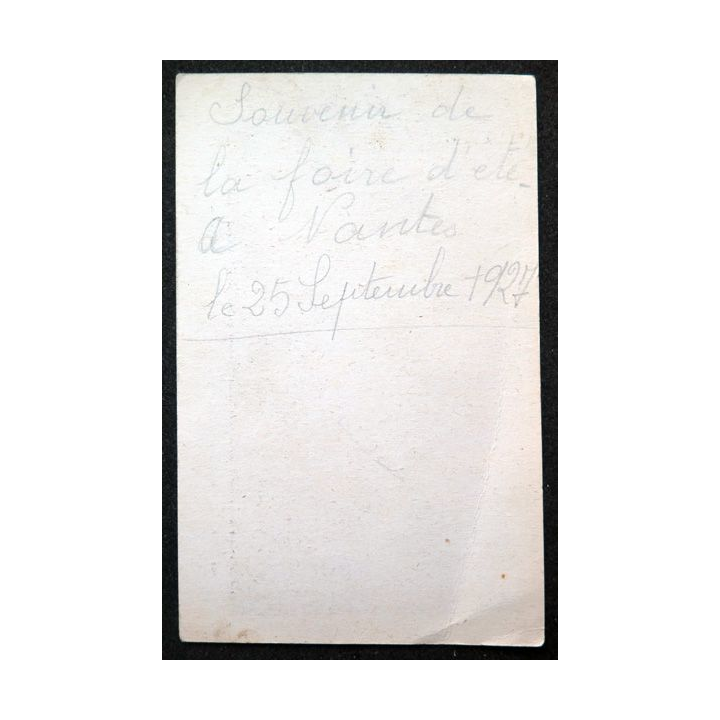 Souvenir de
la foire d'été
à Nantes
le 25 Septembre 1927